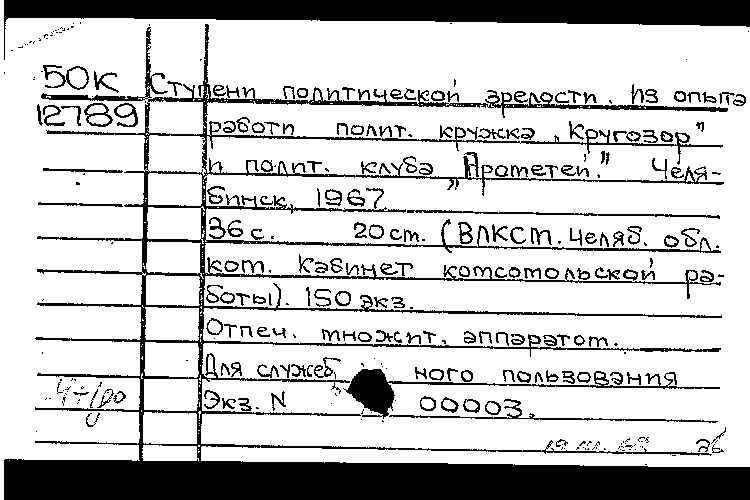 50К Ступени политической зрелости. Из опыта
12789 работи полит. кружка „Кругозор"
и полит. клуба „Прометей." Челя-
бинск, 1967
36 с. 20 ст. (ВЛКСМ. Челяб. обл.
ком. Кабинет комсомольской ра-
боты). 150 экз.
Отпеч. множит. аппаратом.
Для служеб ного пользования
Экз. N 00003.